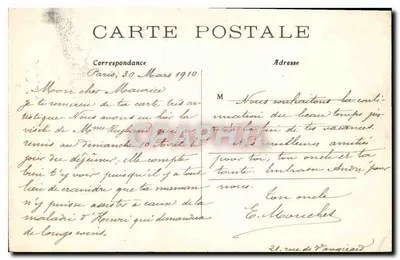 CARTE POSTALE
Correspondance
Adresse
Paris, 20 Mars 1910
Mon cher Maurice
Je te remercie de ta carte très ar-
tistique Nous avons eu hier la
visite de Mme que
remis au Dimanche 10 Avril
jour du déjeuner, elle compte
bien t'y voir puisqu'il y a tout
lieu de craindre que ta maman
n'y puisse assister à cause de la
maladie d'Henri qui demandera
de longs soins.
M Nous souhaitons la conti-
nuation du beau temps jus-
qu'à la fin de tes vacances.
meilleures amitiés
pour toi, ton oncle et ta
tante. André pour
nous.
Ton oncle
E. Mouchet
21, rue de Vaugirard